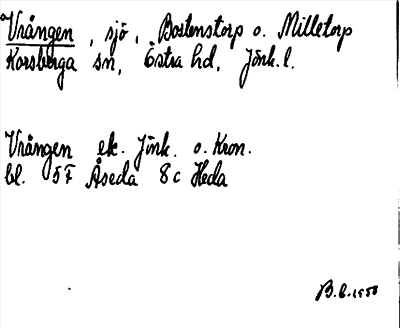 Vrången, sjö, Bostenstorp o. Milletorp
Korsberga sn, Östra hd, Jönk. l.
Vrången ek. Jönk. o. Kron.
bl. 5F Åseda 8c Heda
B.C. 1950